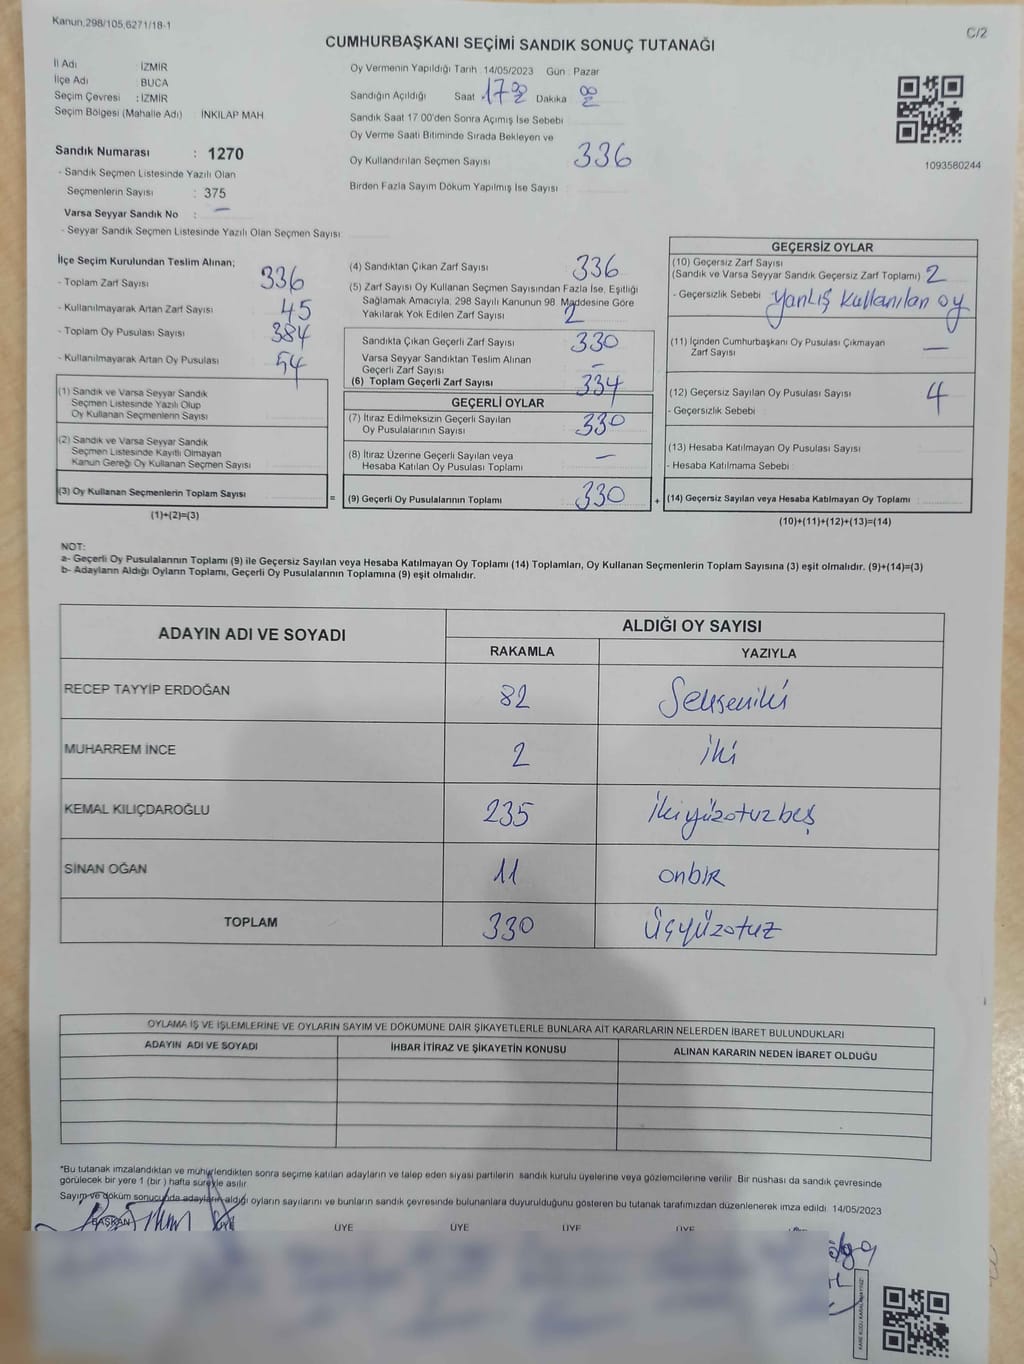 Kanun,298/105,6271/18-1
C/2
CUMHURBAŞKANI SEÇİMİ SANDIK SONUÇ TUTANAĞI
İl Adı : İZMİR
İlçe Adı : BUCA
Seçim Çevresi : İZMİR
Seçim Bölgesi (Mahalle Adı) İNKILAP MAH
Sandık Numarası : 1270
- Sandık Seçmen Listesinde Yazılı Olan
Seçmenlerin Sayısı : 375
Varsa Seyyar Sandık No : —
- Seyyar Sandık Seçmen Listesinde Yazılı Olan Seçmen Sayısı
Oy Vermenin Yapıldığı Tarih : 14/05/2023 Gün : Pazar
Sandığın Açıldığı Saat 17 00 Dakika 00
Sandık Saat 17 00'den Sonra Açımış İse Sebebi
Oy Verme Saati Bitiminde Sırada Bekleyen ve
Oy Kullandırılan Seçmen Sayısı 336
Birden Fazla Sayım Döküm Yapılmış İse Sayısı
1093580244
İlçe Seçim Kurulundan Teslim Alınan;
- Toplam Zarf Sayısı 336
- Kullanılmayarak Artan Zarf Sayısı 45
- Toplam Oy Pusulası Sayısı 384
- Kullanılmayarak Artan Oy Pusulası 54
(1) Sandık ve Varsa Seyyar Sandık
Seçmen Listesinde Yazılı Olup
Oy Kullanan Seçmenlerin Sayısı
(2) Sandık ve Varsa Seyyar Sandık
Seçmen Listesinde Kayıtlı Olmayan
Kanun Gereği Oy Kullanan Seçmen Sayısı
(3) Oy Kullanan Seçmenlerin Toplam Sayısı
(1)+(2)=(3)
=
(4) Sandıktan Çıkan Zarf Sayısı 336
(5) Zarf Sayısı Oy Kullanan Seçmen Sayısından Fazla İse, Eşitliği
Sağlamak Amacıyla, 298 Sayılı Kanunun 98. Maddesine Göre
Yakılarak Yok Edilen Zarf Sayısı 2
Sandıkta Çıkan Geçerli Zarf Sayısı 330
Varsa Seyyar Sandıktan Teslim Alınan
Geçerli Zarf Sayısı —
(6) Toplam Geçerli Zarf Sayısı 334
GEÇERLİ OYLAR
(7) İtiraz Edilmeksizin Geçerli Sayılan
Oy Pusulalarının Sayısı 330
(8) İtiraz Üzerine Geçerli Sayılan veya
Hesaba Katılan Oy Pusulası Toplamı —
(9) Geçerli Oy Pusulalarının Toplamı 330
+
GEÇERSİZ OYLAR
(10) Geçersiz Zarf Sayısı
(Sandık ve Varsa Seyyar Sandık Geçersiz Zarf Toplamı) 2
- Geçersizlik Sebebi Yanlış kullanılan oy
(11) İçinden Cumhurbaşkanı Oy Pusulası Çıkmayan
Zarf Sayısı —
(12) Geçersiz Sayılan Oy Pusulası Sayısı 4
- Geçersizlik Sebebi
(13) Hesaba Katılmayan Oy Pusulası Sayısı
- Hesaba Katılmama Sebebi
(14) Geçersiz Sayılan veya Hesaba Katılmayan Oy Toplamı
(10)+(11)+(12)+(13)=(14)
NOT:
a- Geçerli Oy Pusulalarının Toplamı (9) ile Geçersiz Sayılan veya Hesaba Katılmayan Oy Toplamı (14) Toplamları, Oy Kullanan Seçmenlerin Toplam Sayısına (3) eşit olmalıdır. (9)+(14)=(3)
b- Adayların Aldığı Oyların Toplamı, Geçerli Oy Pusulalarının Toplamına (9) eşit olmalıdır.
ADAYIN ADI VE SOYADI ALDIĞI OY SAYISI
RAKAMLA YAZIYLA
RECEP TAYYİP ERDOĞAN 82 Sekseniki
MUHARREM İNCE 2 iki
KEMAL KILIÇDAROĞLU 235 ikiyüzotuzbeş
SİNAN OĞAN 11 onbir
TOPLAM 330 üçyüzotuz
OYLAMA İŞ VE İŞLEMLERİNE VE OYLARIN SAYIM VE DÖKÜMÜNE DAİR ŞİKAYETLERLE BUNLARA AİT KARARLARIN NELERDEN İBARET BULUNDUKLARI
ADAYIN ADI VE SOYADI İHBAR İTİRAZ VE ŞİKAYETİN KONUSU ALINAN KARARIN NEDEN İBARET OLDUĞU
*Bu tutanak imzalandıktan ve mühürlendikten sonra seçime katılan adayların ve talep eden siyasi partilerin sandık kurulu üyelerine veya gözlemcilerine verilir Bir nüshası da sandık çevresinde
görülecek bir yere 1 (bir ) hafta süreyle asılır
Sayım ve döküm sonucunda adayların aldığı oyların sayılarını ve bunların sandık çevresinde bulunanlara duyurulduğunu gösteren bu tutanak tarafımızdan düzenlenerek imza edildi 14/05/2023
BAŞKAN ÜYE ÜYE ÜYE ÜYE